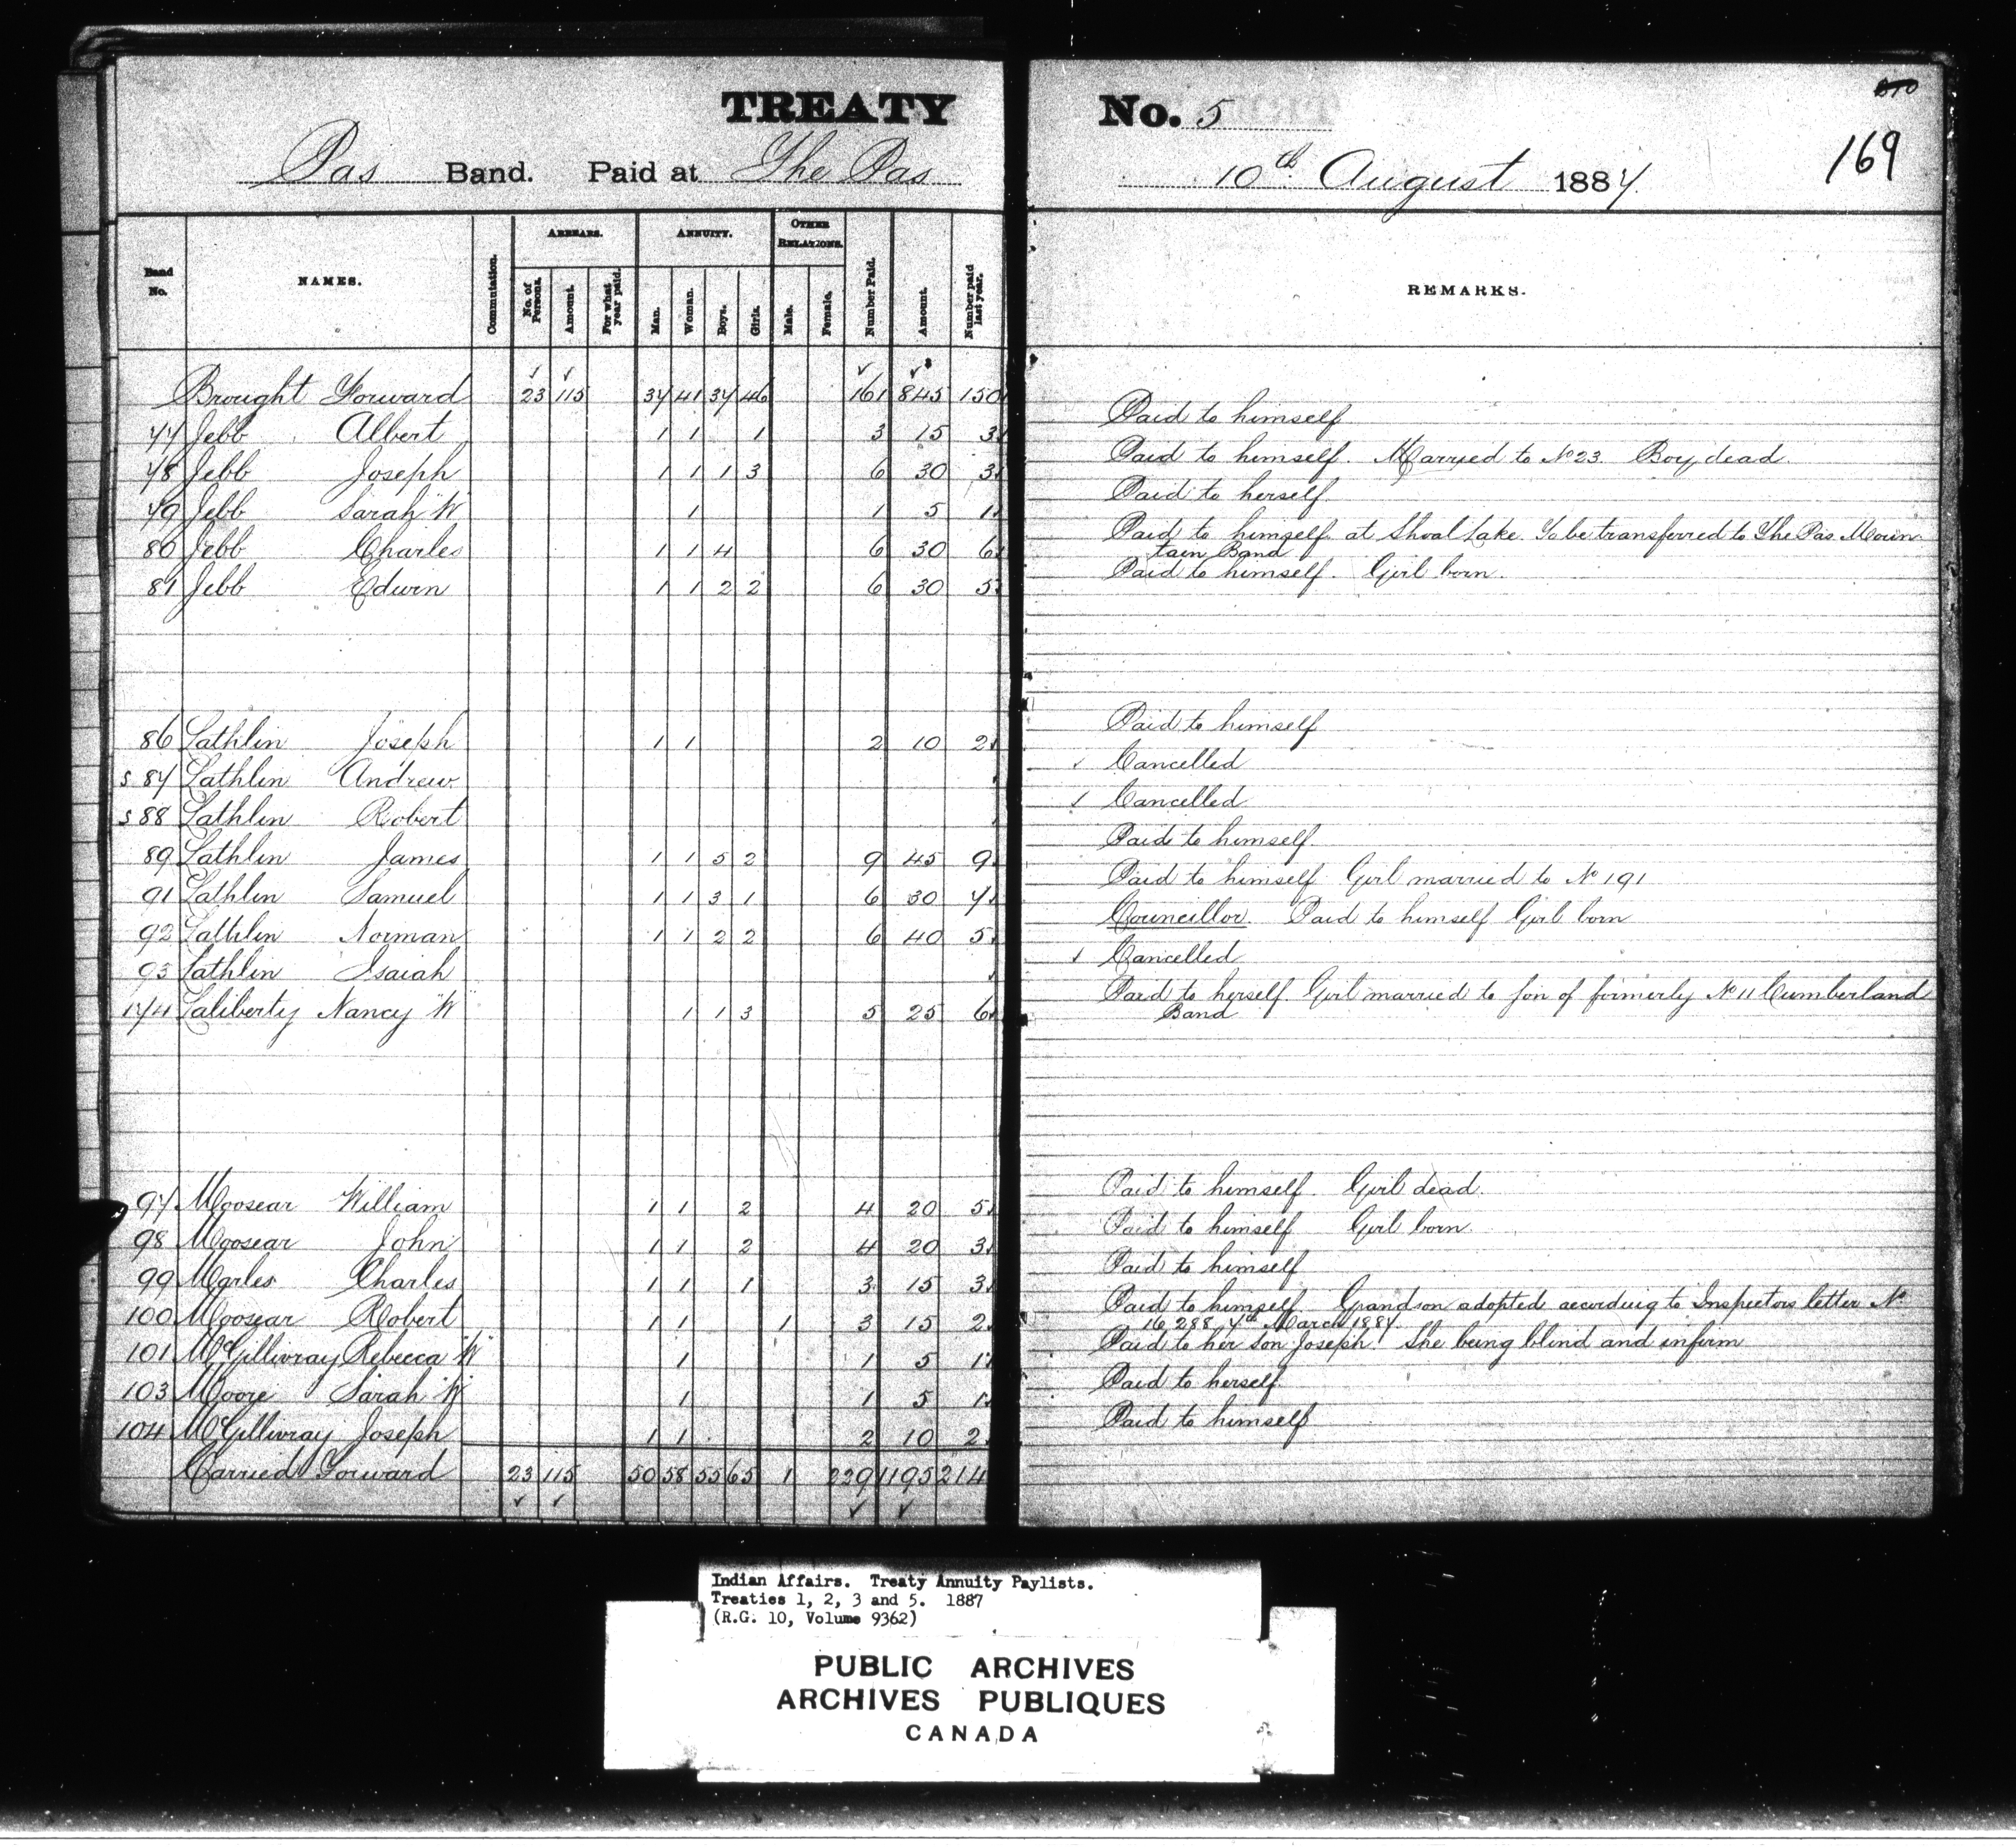 TREATY No. 5
169
Pas Band. Paid at The Pas 10th August 1887
Band No. NAMES. Commutation. ARREARS. No. of Persons. Amount. For what year paid. ANNUITY. Man. Woman. Boys. Girls. OTHER RELATIONS. Male. Female. Number Paid. Amount. Number paid last year. REMARKS.
Brought Forward 23 115 37 41 37 46 161 845 150
77 Jebb Albert 1 1 1 3 15 3 Paid to himself
78 Jebb Joseph 1 1 1 3 6 30 3 Paid to himself. Married to No 23. Boy dead.
79 Jebb Sarah "W" 1 1 5 1 Paid to herself
80 Jebb Charles 1 1 4 6 30 6 Paid to himself at Shoal Lake. To be transferred to The Pas Moun
tain Band
81 Jebb Edwin 1 1 2 2 6 30 5 Paid to himself. Girl born.
86 Lathlin Joseph 1 1 2 10 2 Paid to himself
s 87 Lathlin Andrew Cancelled
s 88 Lathlin Robert Cancelled
89 Lathlin James 1 1 5 2 9 45 9 Paid to himself.
91 Lathlin Samuel 1 1 3 1 6 30 7 Paid to himself Girl married to No 191
92 Lathlin Norman 1 1 2 2 6 40 5 Councillor. Paid to himself Girl born
93 Lathlin Isaiah Cancelled
174 Laliberty Nancy "W" 1 1 3 5 25 6 Paid to herself. Girl married to son of formerly No 11 Cumberland
Band
97 Moosear William 1 1 2 4 20 5 Paid to himself. Girl dead.
98 Moosear John 1 1 2 4 20 3 Paid to himself Girl born.
99 Marles Charles 1 1 1 3 15 3 Paid to himself
100 Moosear Robert 1 1 1 3 15 2 Paid to himself. Grandson adopted according to Inspectors letter No
16 288, 7th March 1887.
101 McGillivray Rebecca "W" 1 1 5 1 Paid to her son Joseph. She being blind and infirm
103 Moore Sarah "W" 1 1 5 1 Paid to herself.
104 McGillivray Joseph 1 1 2 10 2 Paid to himself
Carried Forward 23 115 50 58 55 65 1 229 1195 214
Indian Affairs. Treaty Annuity Paylists.
Treaties 1, 2, 3 and 5. 1887
(R.G. 10, Volume 9362)
PUBLIC ARCHIVES
ARCHIVES PUBLIQUES
CANADA